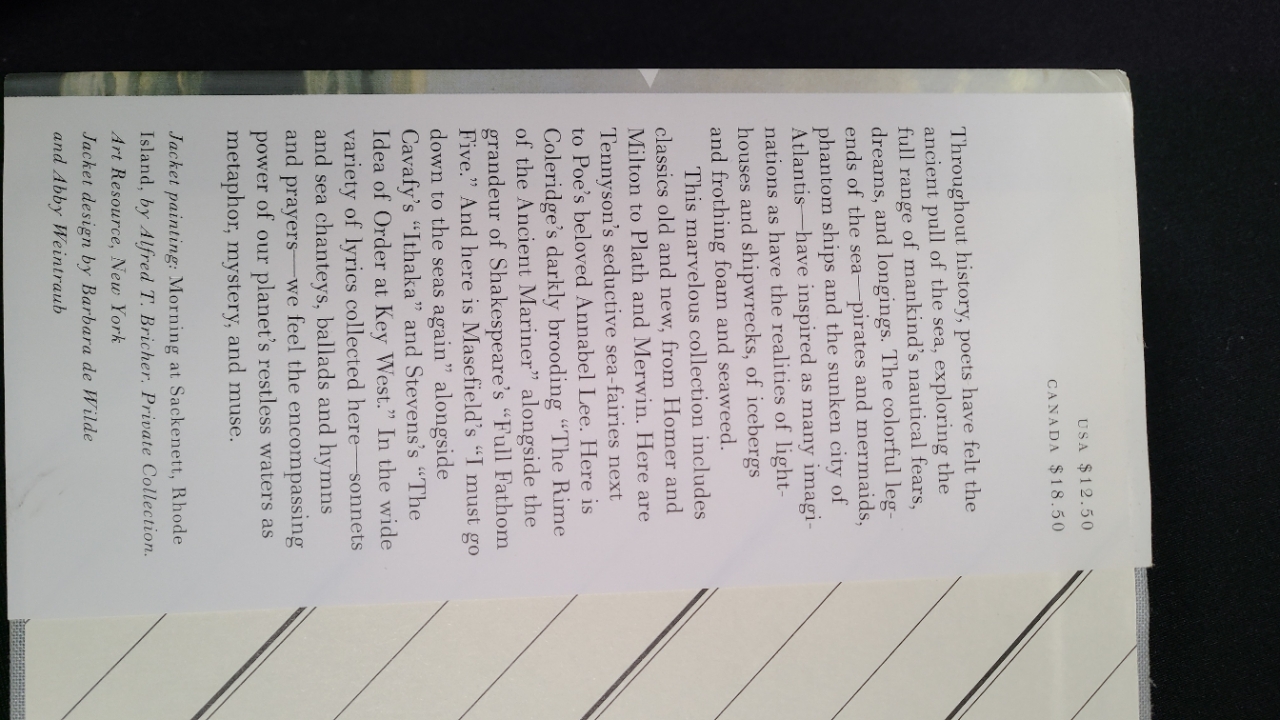 USA $12.50
CANADA $18.50
Throughout history, poets have felt the
ancient pull of the sea, exploring the
full range of mankind's nautical fears,
dreams, and longings. The colorful leg-
ends of the sea—pirates and mermaids,
phantom ships and the sunken city of
Atlantis—have inspired as many imagi-
nations as have the realities of light-
houses and shipwrecks, of icebergs
and frothing foam and seaweed.
This marvelous collection includes
classics old and new, from Homer and
Milton to Plath and Merwin. Here are
Tennyson's seductive sea-fairies next
to Poe's beloved Annabel Lee. Here is
Coleridge's darkly brooding “The Rime
of the Ancient Mariner” alongside the
grandeur of Shakespeare's “Full Fathom
Five.” And here is Masefield's “I must go
down to the seas again” alongside
Cavafy's “Ithaka” and Stevens's “The
Idea of Order at Key West.” In the wide
variety of lyrics collected here—sonnets
and sea chanteys, ballads and hymns
and prayers—we feel the encompassing
power of our planet's restless waters as
metaphor, mystery, and muse.
Jacket painting: Morning at Sackenett, Rhode
Island, by Alfred T. Bricher. Private Collection.
Art Resource, New York
Jacket design by Barbara de Wilde
and Abby Weintraub